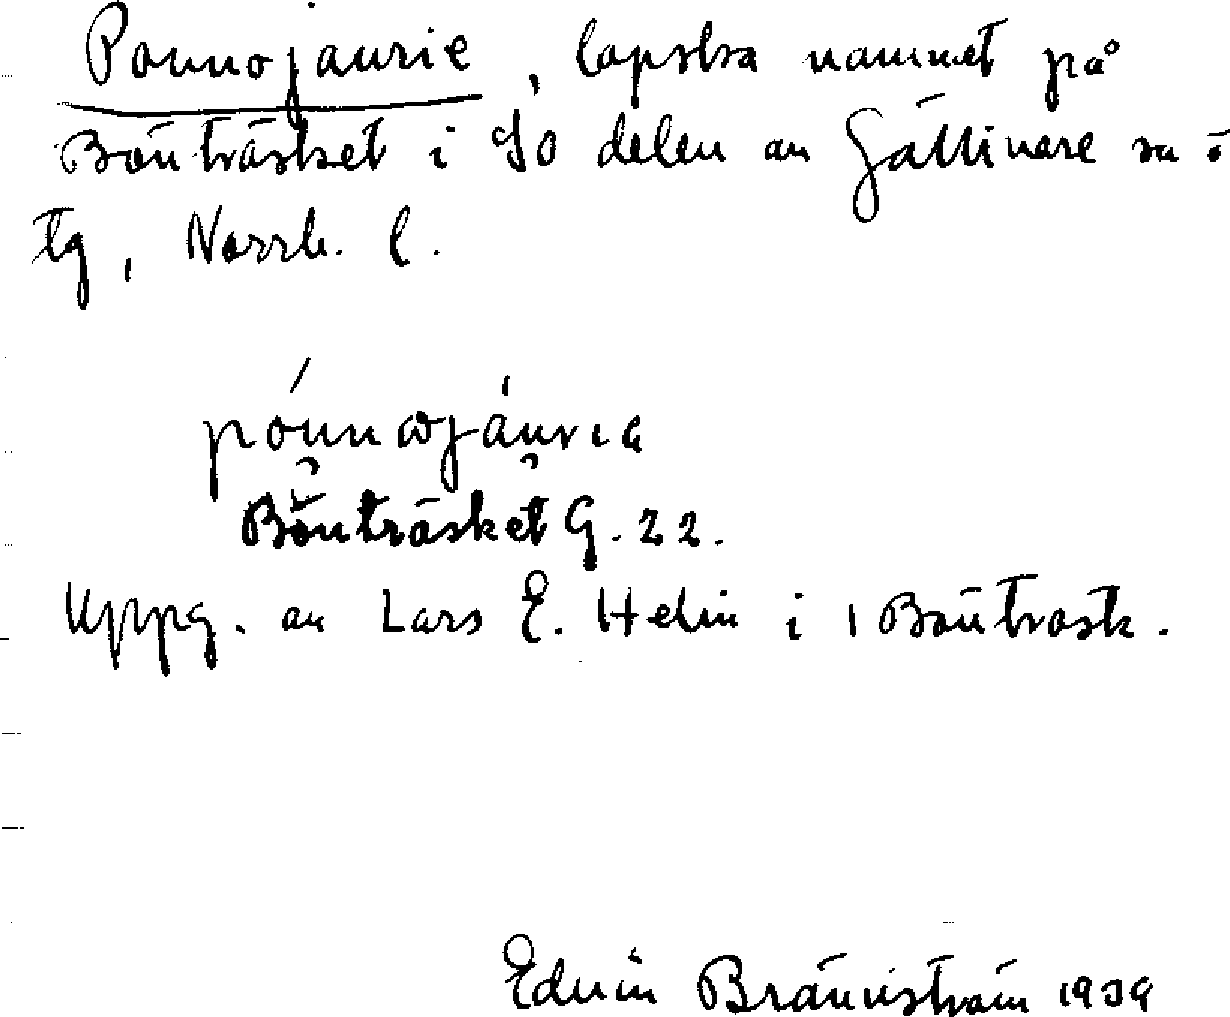 Pounojaurie, lapska namnet på
Bönträsket i SO delen av Gällivare sn o
tg, Norrb. l.
póunωjáuria
Bönträsket G. 22.
Uppg. av Lars E. Helin i Bönträsk.
Edvin Brännström 1939